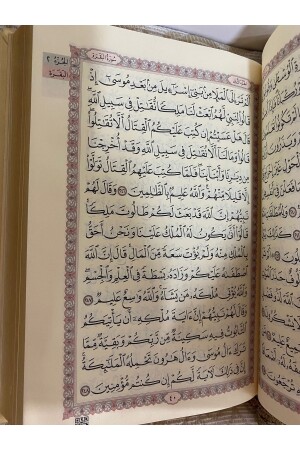 سُورَةُ البَقَرَةِ
الجُزْءُ ٢
أَلَمْ تَرَ إِلَى ٱلْمَلَإِ مِنۢ بَنِىٓ إِسْرَٰٓءِيلَ مِنۢ بَعْدِ مُوسَىٰٓ إِذْ
قَالُوا۟ لِنَبِىٍّ لَّهُمُ ٱبْعَثْ لَنَا مَلِكًا نُّقَٰتِلْ فِى سَبِيلِ ٱللَّهِۖ
قَالَ هَلْ عَسَيْتُمْ إِن كُتِبَ عَلَيْكُمُ ٱلْقِتَالُ أَلَّا تُقَٰتِلُوا۟ۖ
قَالُوا۟ وَمَا لَنَآ أَلَّا نُقَٰتِلَ فِى سَبِيلِ ٱللَّهِ وَقَدْ أُخْرِجْنَا
مِن دِيَٰرِنَا وَأَبْنَآئِنَاۖ فَلَمَّا كُتِبَ عَلَيْهِمُ ٱلْقِتَالُ تَوَلَّوْا۟
إِلَّا قَلِيلًا مِّنْهُمْۗ وَٱللَّهُ عَلِيمٌۢ بِٱلظَّٰلِمِينَ ٢٤٦ وَقَالَ لَهُمْ
نَبِيُّهُمْ إِنَّ ٱللَّهَ قَدْ بَعَثَ لَكُمْ طَالُوتَ مَلِكًاۚ
قَالُوٓا۟ أَنَّىٰ يَكُونُ لَهُ ٱلْمُلْكُ عَلَيْنَا وَنَحْنُ أَحَقُّ
بِٱلْمُلْكِ مِنْهُ وَلَمْ يُؤْتَ سَعَةً مِّنَ ٱلْمَالِۚ قَالَ إِنَّ ٱللَّهَ
ٱصْطَفَىٰهُ عَلَيْكُمْ وَزَادَهُۥ بَسْطَةً فِى ٱلْعِلْمِ وَٱلْجِسْمِۖ
وَٱللَّهُ يُؤْتِى مُلْكَهُۥ مَن يَشَآءُۚ وَٱللَّهُ وَٰسِعٌ عَلِيمٌ ٢٤٧
وَقَالَ لَهُمْ نَبِيُّهُمْ إِنَّ ءَايَةَ مُلْكِهِۦٓ أَن يَأْتِيَكُمُ
ٱلتَّابُوتُ فِيهِ سَكِينَةٌ مِّن رَّبِّكُمْ وَبَقِيَّةٌ مِّمَّا
تَرَكَ ءَالُ مُوسَىٰ وَءَالُ هَٰرُونَ تَحْمِلُهُ ٱلْمَلَٰٓئِكَةُۚ
إِنَّ فِى ذَٰلِكَ لَءَايَةً لَّكُمْ إِن كُنتُم مُّؤْمِنِينَ ٢٤٨
٤٠